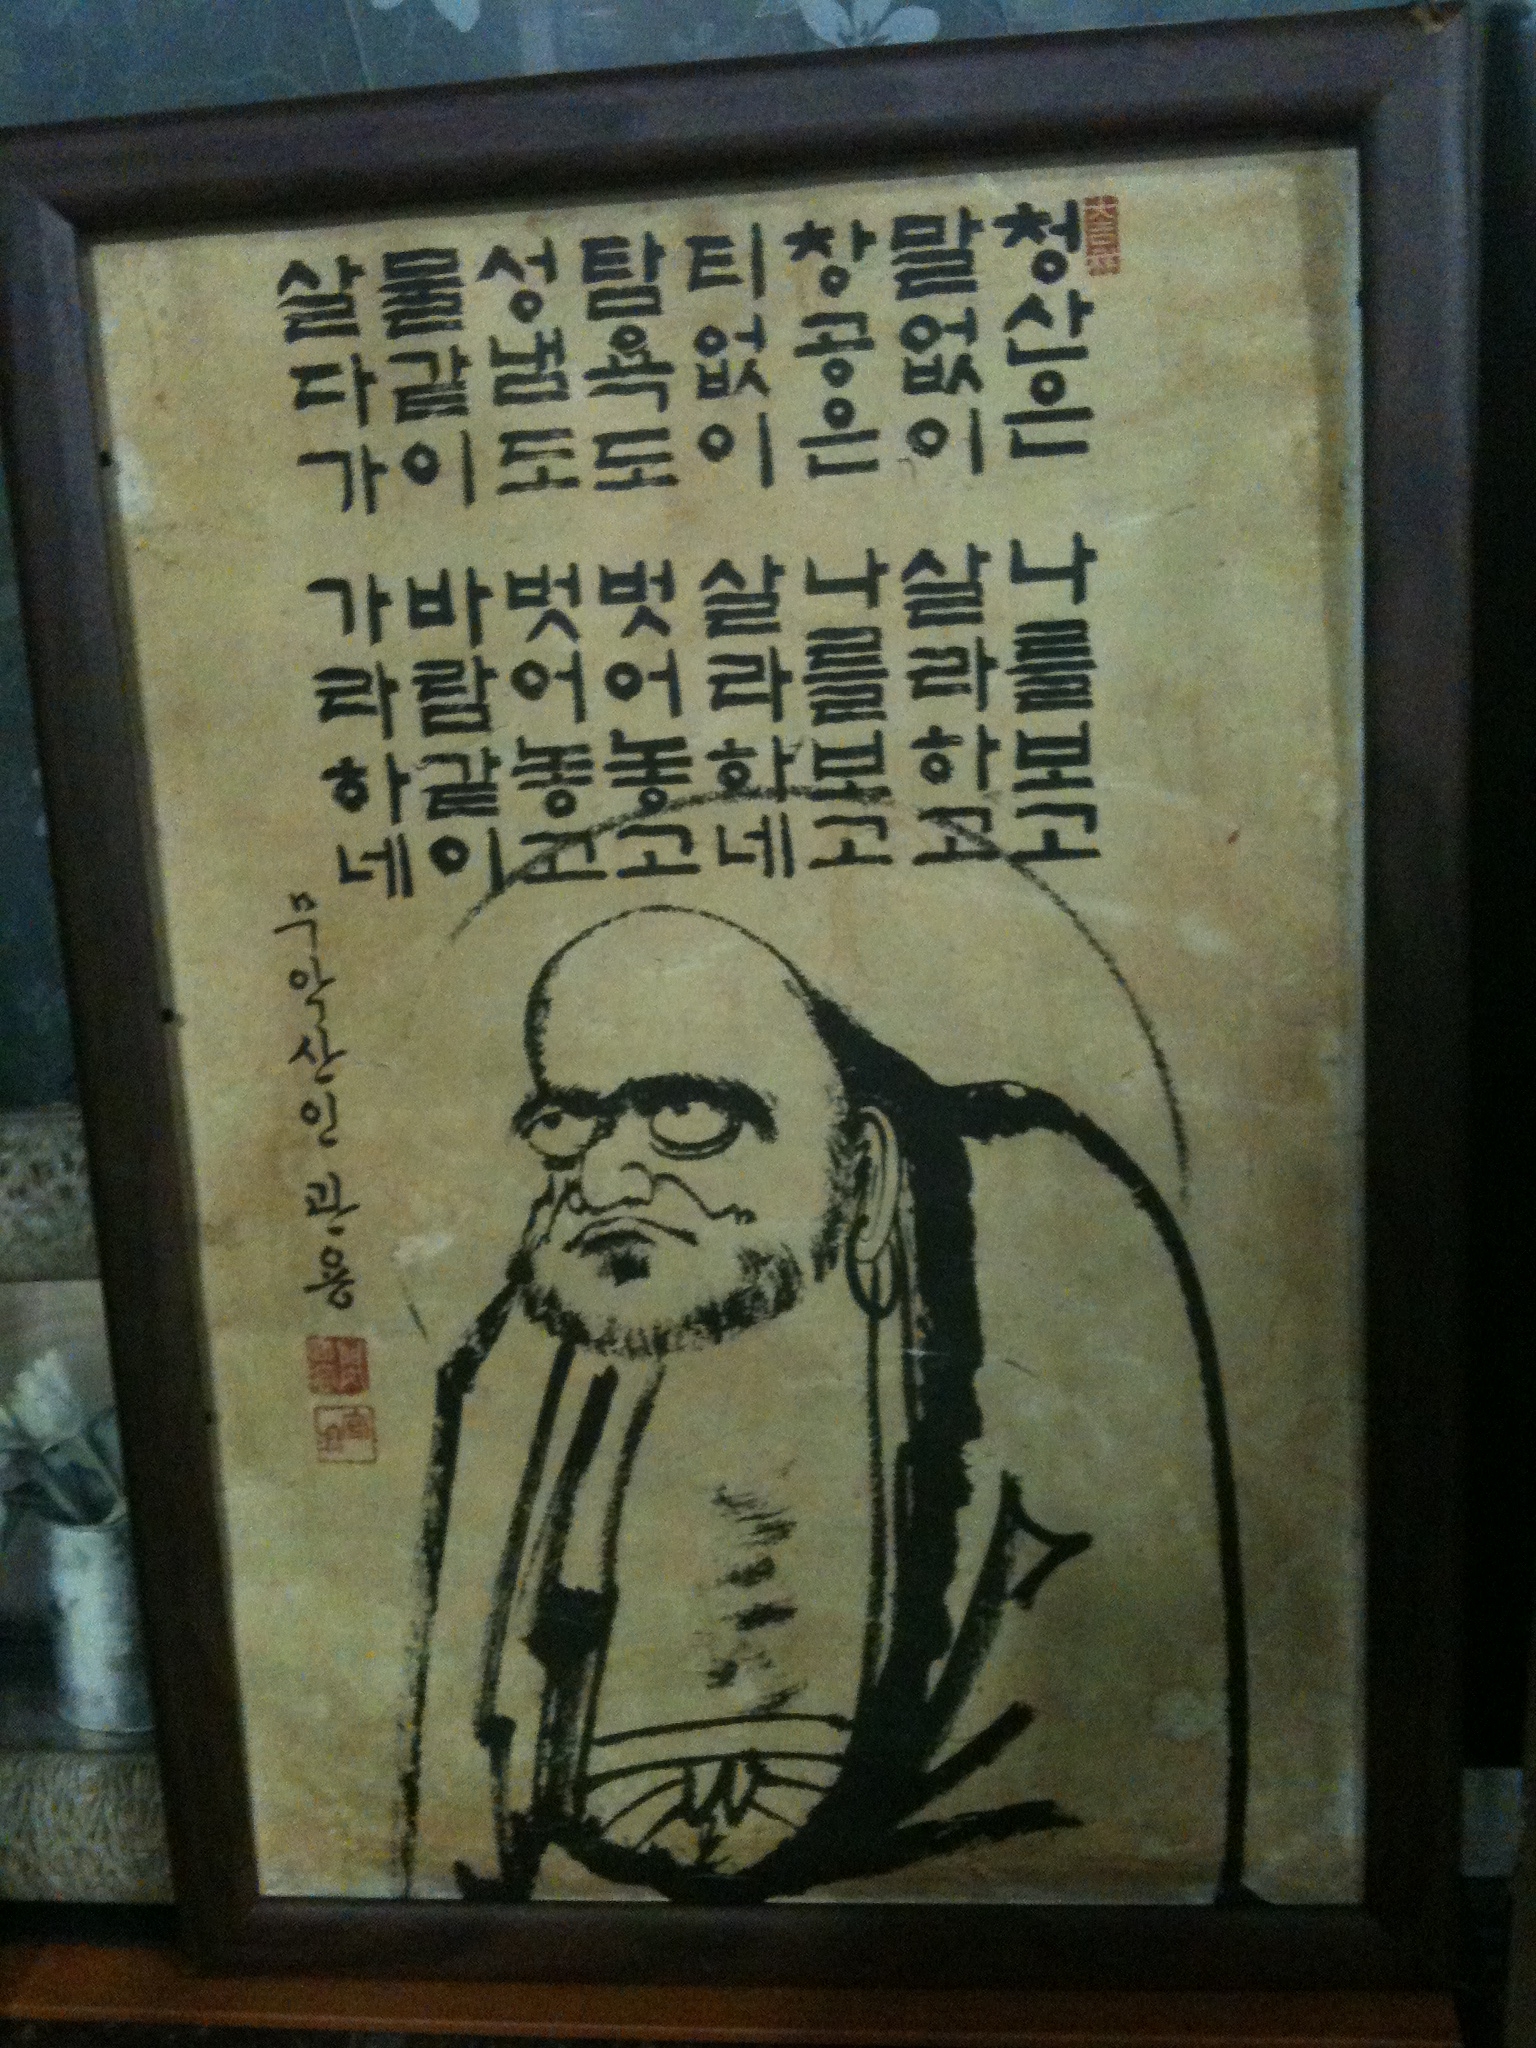 청산은 나를보고
말없이 살라하고
창공은 나를보고
티없이 살라하네
탐욕도 벗어놓고
성냄도 벗어놓고
물같이 바람같이
살다가 가라하네